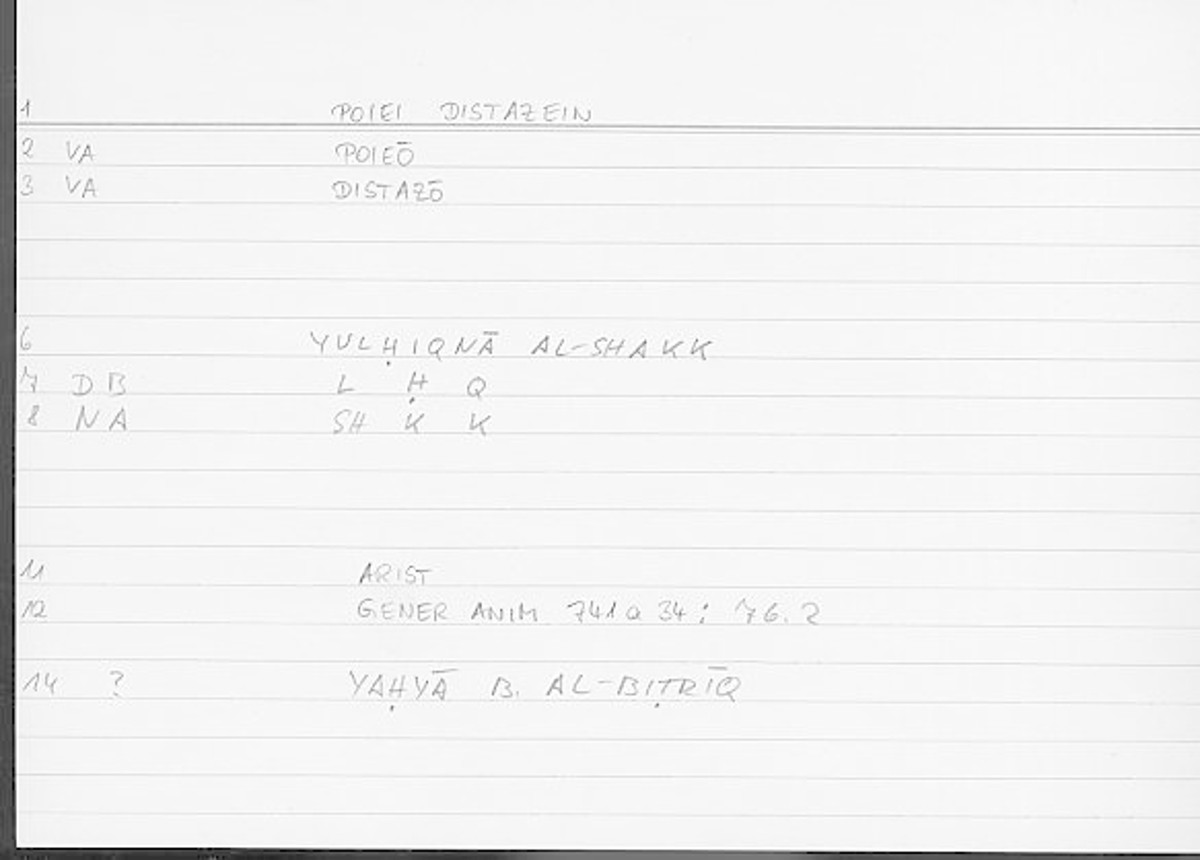 1 POIEI DISTAZEIN
2 VA POIEŌ
3 VA DISTAZŌ
6 YULḤIQNĀ AL-SHAKK
7 DB L Ḥ Q
8 NA SH K K
11 ARIST
12 GENER ANIM 741a 34; 76.2
14 ? YAḤYĀ B. AL-BIṬRĪQ